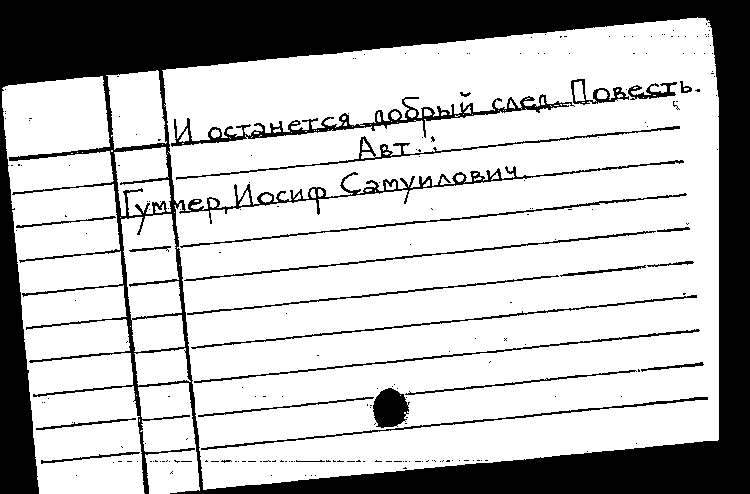 И останется добрый след. Повесть.
Авт.:
Гуммер, Иосиф Самуилович.